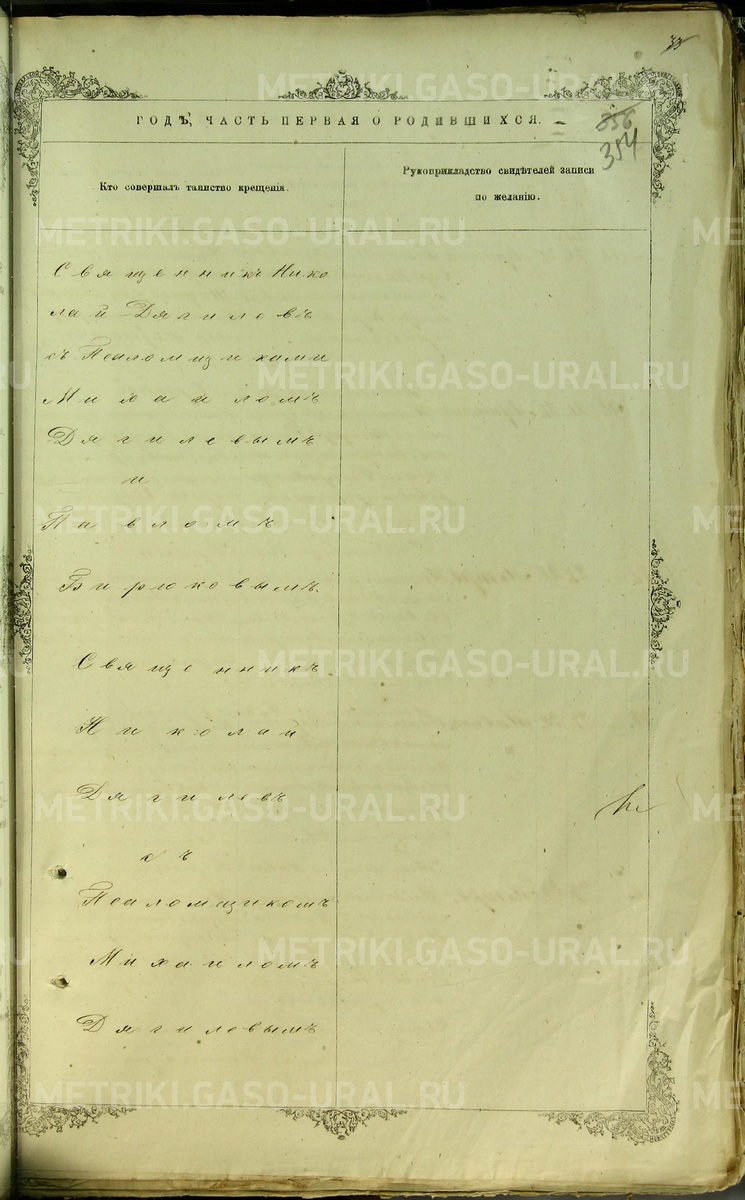 33
ГОДЪ, ЧАСТЬ ПЕРВАЯ О РОДИВШИХСЯ.
356
354
Кто совершалъ таинство крещенія.
Рукоприкладство свидѣтелей записи
по желанію.
Священникъ Нико
лай Дягилевъ
съ Псаломщиками
Михаиломъ
Дягилевымъ
и
Павломъ
Бирюковымъ.
Священникъ
Николай
Дягилевъ
съ
Псаломщикомъ
Михаиломъ
Дягилевымъ
METRIKI.GASO-URAL.RU